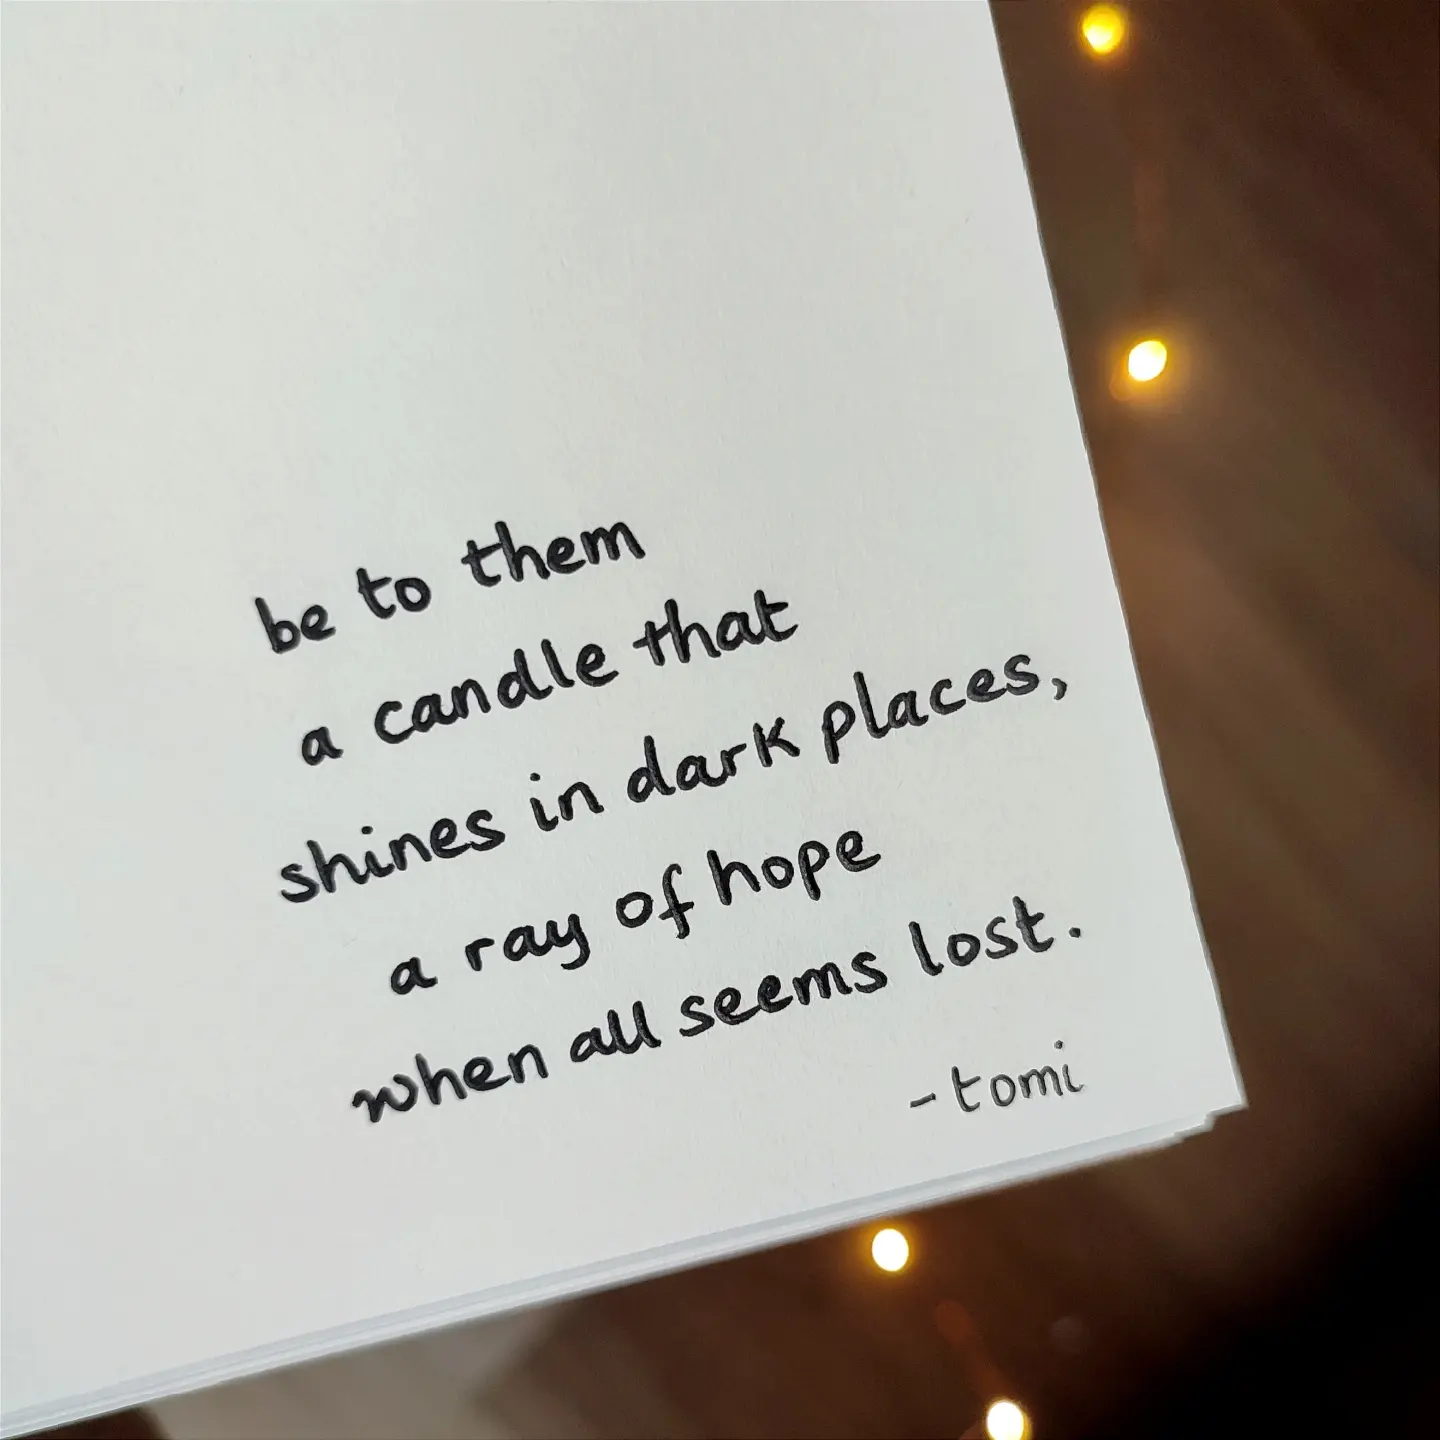 be to them
a candle that
shines in dark places,
a ray of hope
when all seems lost.
- tomi